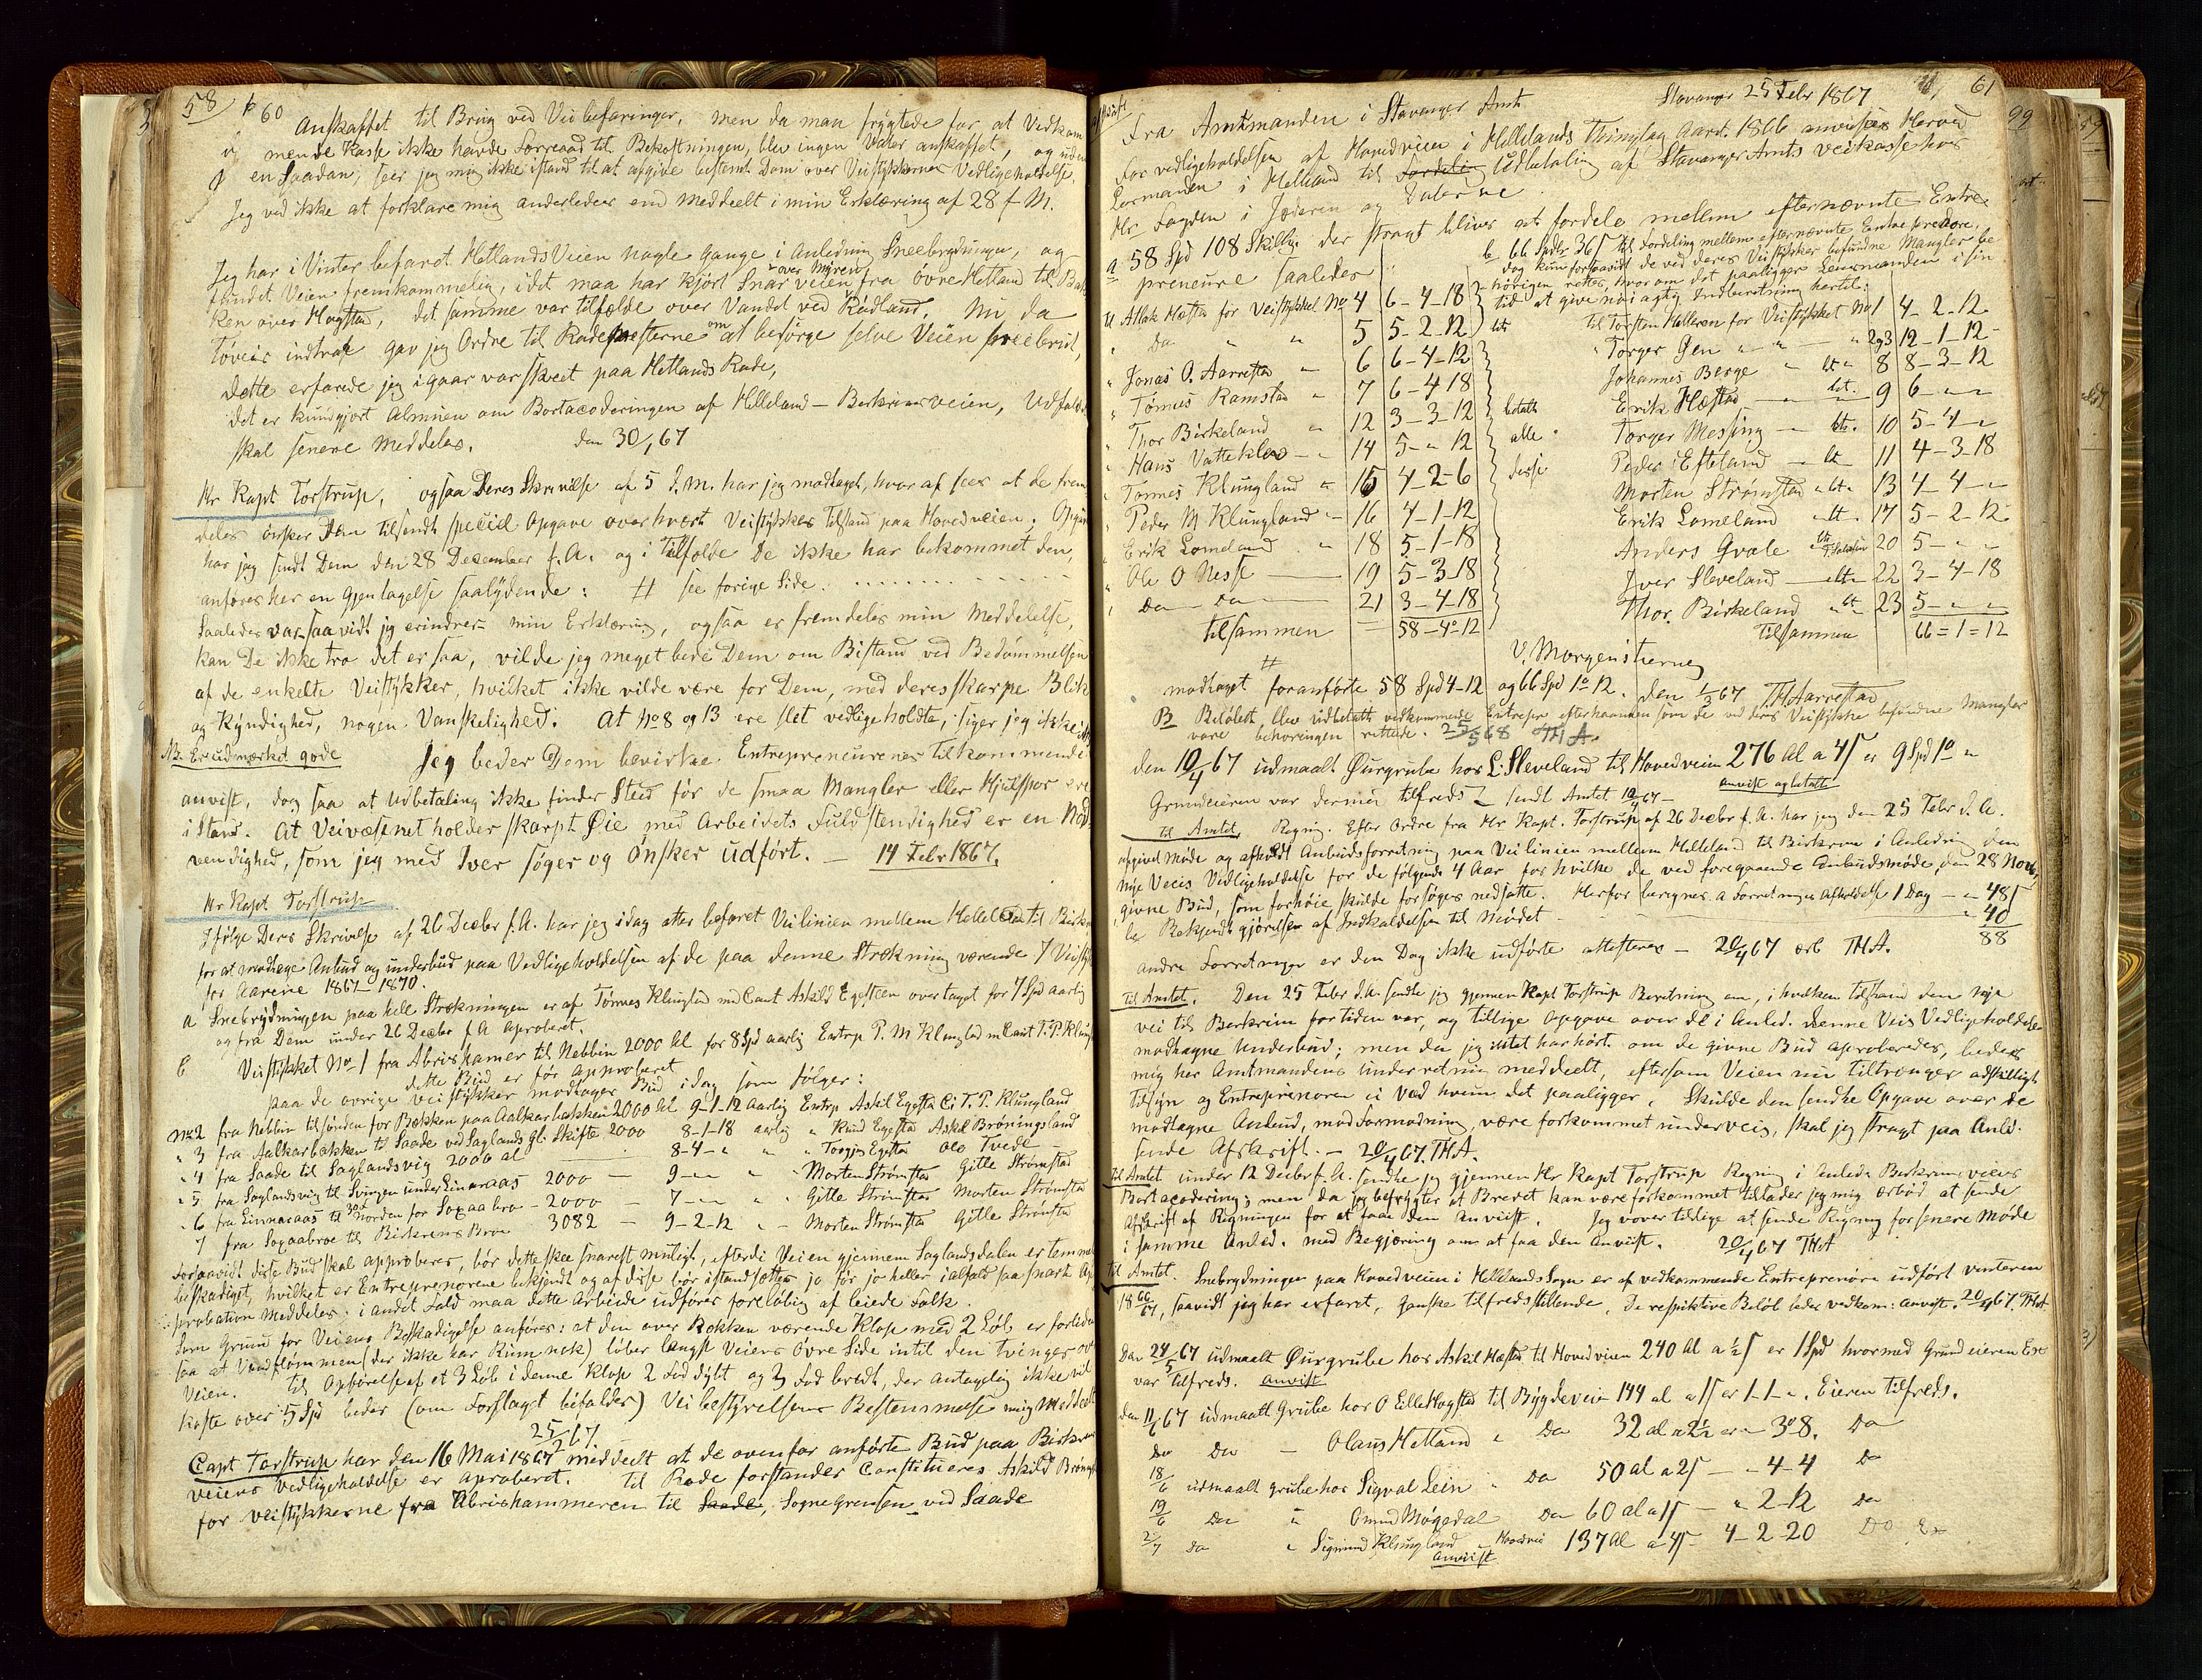 58 60
Anskaffet til Brug ved Veibefaringer, men da man frygtede for at Vedkom
mende Kasse ikke havde Forraad til Bekostningen, blev ingen Vater anskaffet, og uden
en Saadan, seer jeg mig ikke istand til at afgive bestemt Dom over Veistykkernes Vedligeholdelse.
Jeg ved ikke at forklare mig anderledes end meddeelt i min Erklæring af 28 f. M.
Jeg har i Vinter befaret Hetlands Veien nogle Gange i Anledning Sneebrydningen, og
fundet Veien fremkommelig, idet man har kjørt Snarveien over Myren fra Øvre Hetland til Bak
ken over Hogstad, det samme var tilfælde over Vandet ved Rødland. Nu da
Tøveir indtraf gav jeg Ordre til Rodemesterne om at besørge selve Veien sneebrudt,
dette erfarede jeg igaar var skeet paa Hetlands Rode,
det er kundgjort Almuen om Bortacorderingen af Helleland - Berkrimsveien, Udfaldet
skal senere Meddeles. den 30/1 67
Hr Kapt Torstrup, ogsaa Deres Skrivelse af 5 d. M. har jeg modtaget, hvoraf sees at de frem
deles ønsker Dem tilsendt speciel Opgave over hvert Veistykkes Tilstand paa Hovedveien. Opgave
har jeg sendt Dem den 28 December f. A. og i Tilfælde De ikke har bekommet den,
anføres her en Gjentagelse saalydende: # see forige Side.
Saaledes var saavidt jeg erindrer min Erklæring, ogsaa er fremdeles min Meddelelse,
kan De ikke tro det er saa, vilde jeg meget bede Dem om Bistand ved Bedømmelsen
af de enkelte Veistykker, hvilket ikke vilde være for Dem, med deres skarpe Blik
og Kyndighed, nogen Vanskelighed. At No 8 og 13 ere slet vedligeholdte, siger jeg ikke
NB. Er udmærket gode Jeg beder Dem bevirke Entrepreneurenes tilkommende
anvist, dog saa at Udbetaling ikke finder Sted før de smaa Mangler eller Hjulspor ere
i Stand. At Veivæsenet holder skarpt Øie med Arbeidets Fuldstendighed er en Nød
vendighed, som jeg med Iver søger og Ønsker udført. — 14 Febr 1867.
Hr Kapt Torstrup
Ifølge Deres Skrivelse af 26 Decbr f. A. har jeg idag atter befaret Veilinien mellem Helleland til Birkrem
for at modtage Anbud og underbud paa Vedligeholdelsen af de paa denne Strækning værende 7 Veistykker
for Aarene 1867–1870.
a Snebrydningen paa hele Strækningen er af Tønnes Klungland med Caut Askild Egesteen overtaget for 7 Spd aarlig
og fra Dem under 26 Decbr f. A aproberet.
b Veistykket No 1 fra Abrishamer til Nebbin 2000 Al for 8 Spd aarlig Entrp P. M Klungland m Caut T. P. Klungland
dette Bud er før approberet
paa de øvrige Veistykker modtages Bud idag som følger:
No 2 fra Nebbin til sønden for Bækken paa Aalkarbakken 2000 Al 9-1-12 Aarlig Entrp Askil Egesta C: T. P. Klungland
" 3 fra Aalkarbakken til Saade ved Saglands gl. Skifte 2000 8-1-18 aarlig " Knud Egesta Askil Brøningsland
" 4 fra Saade til Saglandsvig 2000 al 8-4-" " " Torgjus Egesta Ole Tvede
" 5 fra Saglandsvig til Svingen under Linnaraas 2000 — 9-"-" " " Morten Strømstad Gitle Strømstad
" 6 fra Linnaraas til 30 al Norden for Soxaabro - 2000 — 7-"-" " " Gitle Strømstad Morten Strømstad
7 fra Soxaabroe til Birkrems Broe 3082 — 9-2-12 " - Morten Strømstad Gitle Strømstad
Forsaavidt disse Bud skal approberes, bør dette skee snarest muligt, efterdi Veien gjennem Saglandsdalen er temmelig
beskadiget, hvilket er Entreprenørene bekjendt og af disse bør istandsættes jo før jo heller ialfald saa snart Ap
probation Meddeles; i andet Fald maa dette Arbeide udføres foreløbig af leiede Folk.
Som Grund for Veiens Beskadigelse anføres: at den over Bækken værende Klop med 2 Løb er for liden
saa at Vandflommen (der ikke har Rum nok) løber langst Veiens Øvre Side intil den tvinges over
Veien. Til Opførelse af et 3 Løb i denne Klop 2 Fod dybt og 3 Fod bredt, der antagelig ikke vil
koste over 5 Spd beder (om Forslaget bifaldes) Veibestyrelsens Bestemmelse mig Meddeelt
25/2 67.
Capt Torstrup har den 16 Mai 1867 meddeelt at de ovenfor anførte Bud paa Birkrems
veiens Vedligeholdelse er aproberet. Til Rodeforstander Constitueres Askild Brønings
for Veistykkerne fra Abrishammeren til Saade, Sognegrensen ved Saade
61
Fra Amtmanden i Stavanger Amt Stavanger 25 Febr 1867
For vedligeholdelsen af Hovedveien i Hellelands Thinglag Aart. 1866 anvises Herved
Lensmanden i Helland til Fordeling Udbetaling af Stavanger Amts Veikasse hos
Hr Fogden i Jæderen og Dalerne
a 58 Spd 108 Skilling der straxt bliver at fordele mellem efternævnte Entre
preneure saaledes
b 66 Spdr 36 s til Fordeling mellem efternævnte Entreprenører,
dog kun forsaavidt de ved deres Veistykker befundne Mangler be
hørigen rettes, hvorom det paaligger Lensmanden i sin
tid at give nøiagtig Indberetning hertil:
til Atlak Hæstad for Veistykket No 4 6-4-18
" Do " " 5 5-2-12
" Jonas O. Aarrestad " 6 6-4-12
" Tønnes Ramstad " 7 6-4-18
" Thor Birkeland " 12 3-3-12
" Hans Vatteklev - " 14 5-"-12
" Tønnes Klungland " 15 4-2-6
" Peder M Klungland " 16 4-1-12
" Erik Lomeland " 18 5-1-18
" Ole O Nesse — 19 5-3-18
" Do — Do — 21 3-4-18
tilsammen — 58-4-12
betalt alle disse
Til Torsten Helleren for Veistykket No 1 4-2-12
" Torger Gen " " " 2og3 12-1-12
Johannes Berge " bt " 8 8-3-12
Erik Hæstad — bt. 9 6-"-"
Torger Messing — bt. 10 5-4-"
Peder Efteland — bt 11 4-3-18
Morten Strømstad " bt " 13 4-4-"
Erik Lomeland " bt - 17 5-2-12
Anders Gvale " 20 5-"-"
Iver Sleveland — bt " 22 3-4-18
Thor Birkeland " bt 23 5-"-"
Tilsammen 66=1=12
V. Morgenstierne
#
modtaget foranførte 58 Spd 4-12 og 66 Spd 1-12. den 1/3 67 TH Aarrestad
B Beløbet blev udbetalt vedkommende Entrepr efterhaanden som de ved deres Veistykke befundne Mangler
vare behøringen rettede. 25/5 68 THA.
den 10/4 67 udmaalt Øurgrube hos L. Sleveland til Hovedveien 276 Al a 4 s er 9 Spd 1 "
Grundeieren var dermed tilfreds - sendt Amtet 10/4 67 - anvist og betalt
til Amtet. Regning. Efter Ordre fra Hr Kapt. Torstrup af 26 Decbr f. A. har jeg den 25 Febr d. A.
afgivet Møde og afholdt Anbudsforretning paa Veilinien mellem Helleland til Birkrem i Anledning den
nye Veies Vedligeholdelse for de følgende 4 Aar for hvilke de ved foregaaende Anbudsmøde, den 28 Novbr
givne Bud, som forhøie skulde forsøges nedsatte. Herfor beregnes a Forretningens Afholdelse 1 Dag — " 48 s
b, Bekjendtgjørelsen af Indkaldelsen til Mødet — " 40
88
andre Forretninger er den Dag ikke udførte attesteres — 20/4 67 erb THA.
Til Amtet. Den 25 Febr d. A. sendte jeg gjennem Kapt Torstrup Beretning om, i hvilken tilstand den nye
vei til Berkrim for tiden var, og tillige Opgave over de i Anled. denne Veis Vedligeholdelse
modtagne Underbud; men da jeg intet har hørt om de givne Bud aproberedes, bedes
mig her Amtmandens Underretning meddeelt, eftersom Veien nu tiltrænger adskilligt
tilsyn og Entreprenøren ei ved hvem det paaligger. Skulde den sendte Opgave over de
modtagne Anbud, mod Formodning, være forkommet underveis, skal jeg straxt paa Anld.
sende Afskrift. — 20/4 67. THA.
Til Amtet under 12 Decbr f. A. sendte jeg gjennem Hr Kapt Torstrup Regning i Anledn Berkrimsveiens
Bortacordering; men da jeg befrygter at Brevet kan være forkommet tillader jeg mig ærbød at sende
Afskrift af Regningen for at faae den anviist. Jeg vover tillige at sende Regning for senere Møde
i samme Anled. med Begjæring om at faa den anviist. 20/4 67 THA
Til Amtet. Snebrydningen paa Hovedveien i Hellelands Sogn er af vedkommende Entreprenøre udført vinteren
18 66/67, saavidt jeg har erfaret, ganske tilfredsstillende, De respiktive Beløb bedes vedkom: anvist. 20/4 67. THA
Den 24/5 67 udmaalt Øurgrube hos Askil Hæstad til Hovedveien 240 Al a ½ s er 1 Spd hvormed Grundeieren
var tilfreds. anvist
den 11/6 67 udmaalt Grube hos O Eille Hogstad til Bygdeveie 144 al a 1 s er 1-1-". Eieren tilfreds.
Do Do — Olaus Hetland " Do 32 al a 2½ er — 3-8. Do
18/6 udmaalt grube hos Sigval Lein " Do 50 al a 2 s — " 4-4 Do
19/6 Do " Omund Møgedal Do 60 al a 1 s — " 2-12 Do
2/7 Do " Sigmund Klungland Hovedvei 137 Al a 4 s 4-2-20 Do
anviist